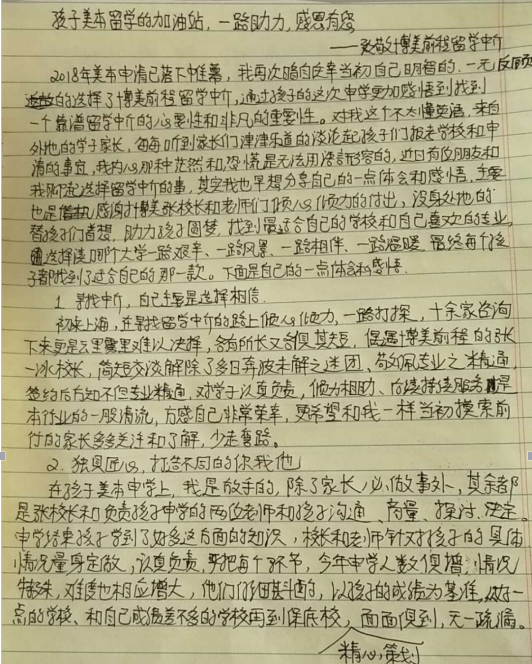 孩子美本留学的加油站，一路助力，感恩有您
——致敬博美前程留学中介
2018年美本申请已落下帷幕，我再次暗自庆幸当初自己明智的，一无反顾
的选择了博美前程留学中介，通过孩子的这次申学更加感悟到找到
一个靠谱留学中介的必要性和非凡的重要性。对我这个不太懂英语，来自
外地的学子家长，每每听到家长们津津乐道的谈论起孩子们报考学校和申
请的事宜，我内心那种茫然和恐慌是无法用语言形容的，近日有位朋友和
我聊起选择留学中介的事，其实我也早想分享自己的一点体会和感悟，主要
也是借机感谢博美张校长和老师们倾心倾力的付出，设身处地的
替孩子们着想，助力孩子圆梦，找到最适合自己的学校和自己喜欢的专业，
选择读那个大学一路艰辛、一路风景、一路相伴、一路温暖，最终每个孩
子都找到了适合自己的那一款。下面是自己的一点体会和感悟.
1. 寻找中介，自己主要是选择相信.
初来上海，在寻找留学中介的路上倾心倾力，一路打探，十余家咨询
下来更是云里雾里难以决择，各有所长又各俱其短，偶遇博美前程的张
冰校长，简短交谈解除了多日奔波未解之迷团、苟幼佩专业之精通，
签约后方知不但专业精通，对学子认真负责，倾力相助、后续持续服务是
本行业的一股清流，方感自己非常荣幸，更希望和我一样当初摸索前
行的家长多多关注和了解，少走弯路。
2. 独具匠心，打造不同的你我他
在孩子美本申学上，我是放手的，除了家长必做事外，其余都
是张校长和负责孩子申学的两位老师和孩子沟通、商量、探讨、决定。
申学结束孩子学到了好多这方面的知识，校长和老师针对孩子的具体
情况量身定做，认真负责，严把每个环节，今年申学人数俱增，情况
特殊，难度也相应增大，他们仔细斟酌，以孩子的成绩为基准，从好一
点的学校、和自己成绩差不多的学校再到保底校，面面俱到，无一疏漏。
精心策划